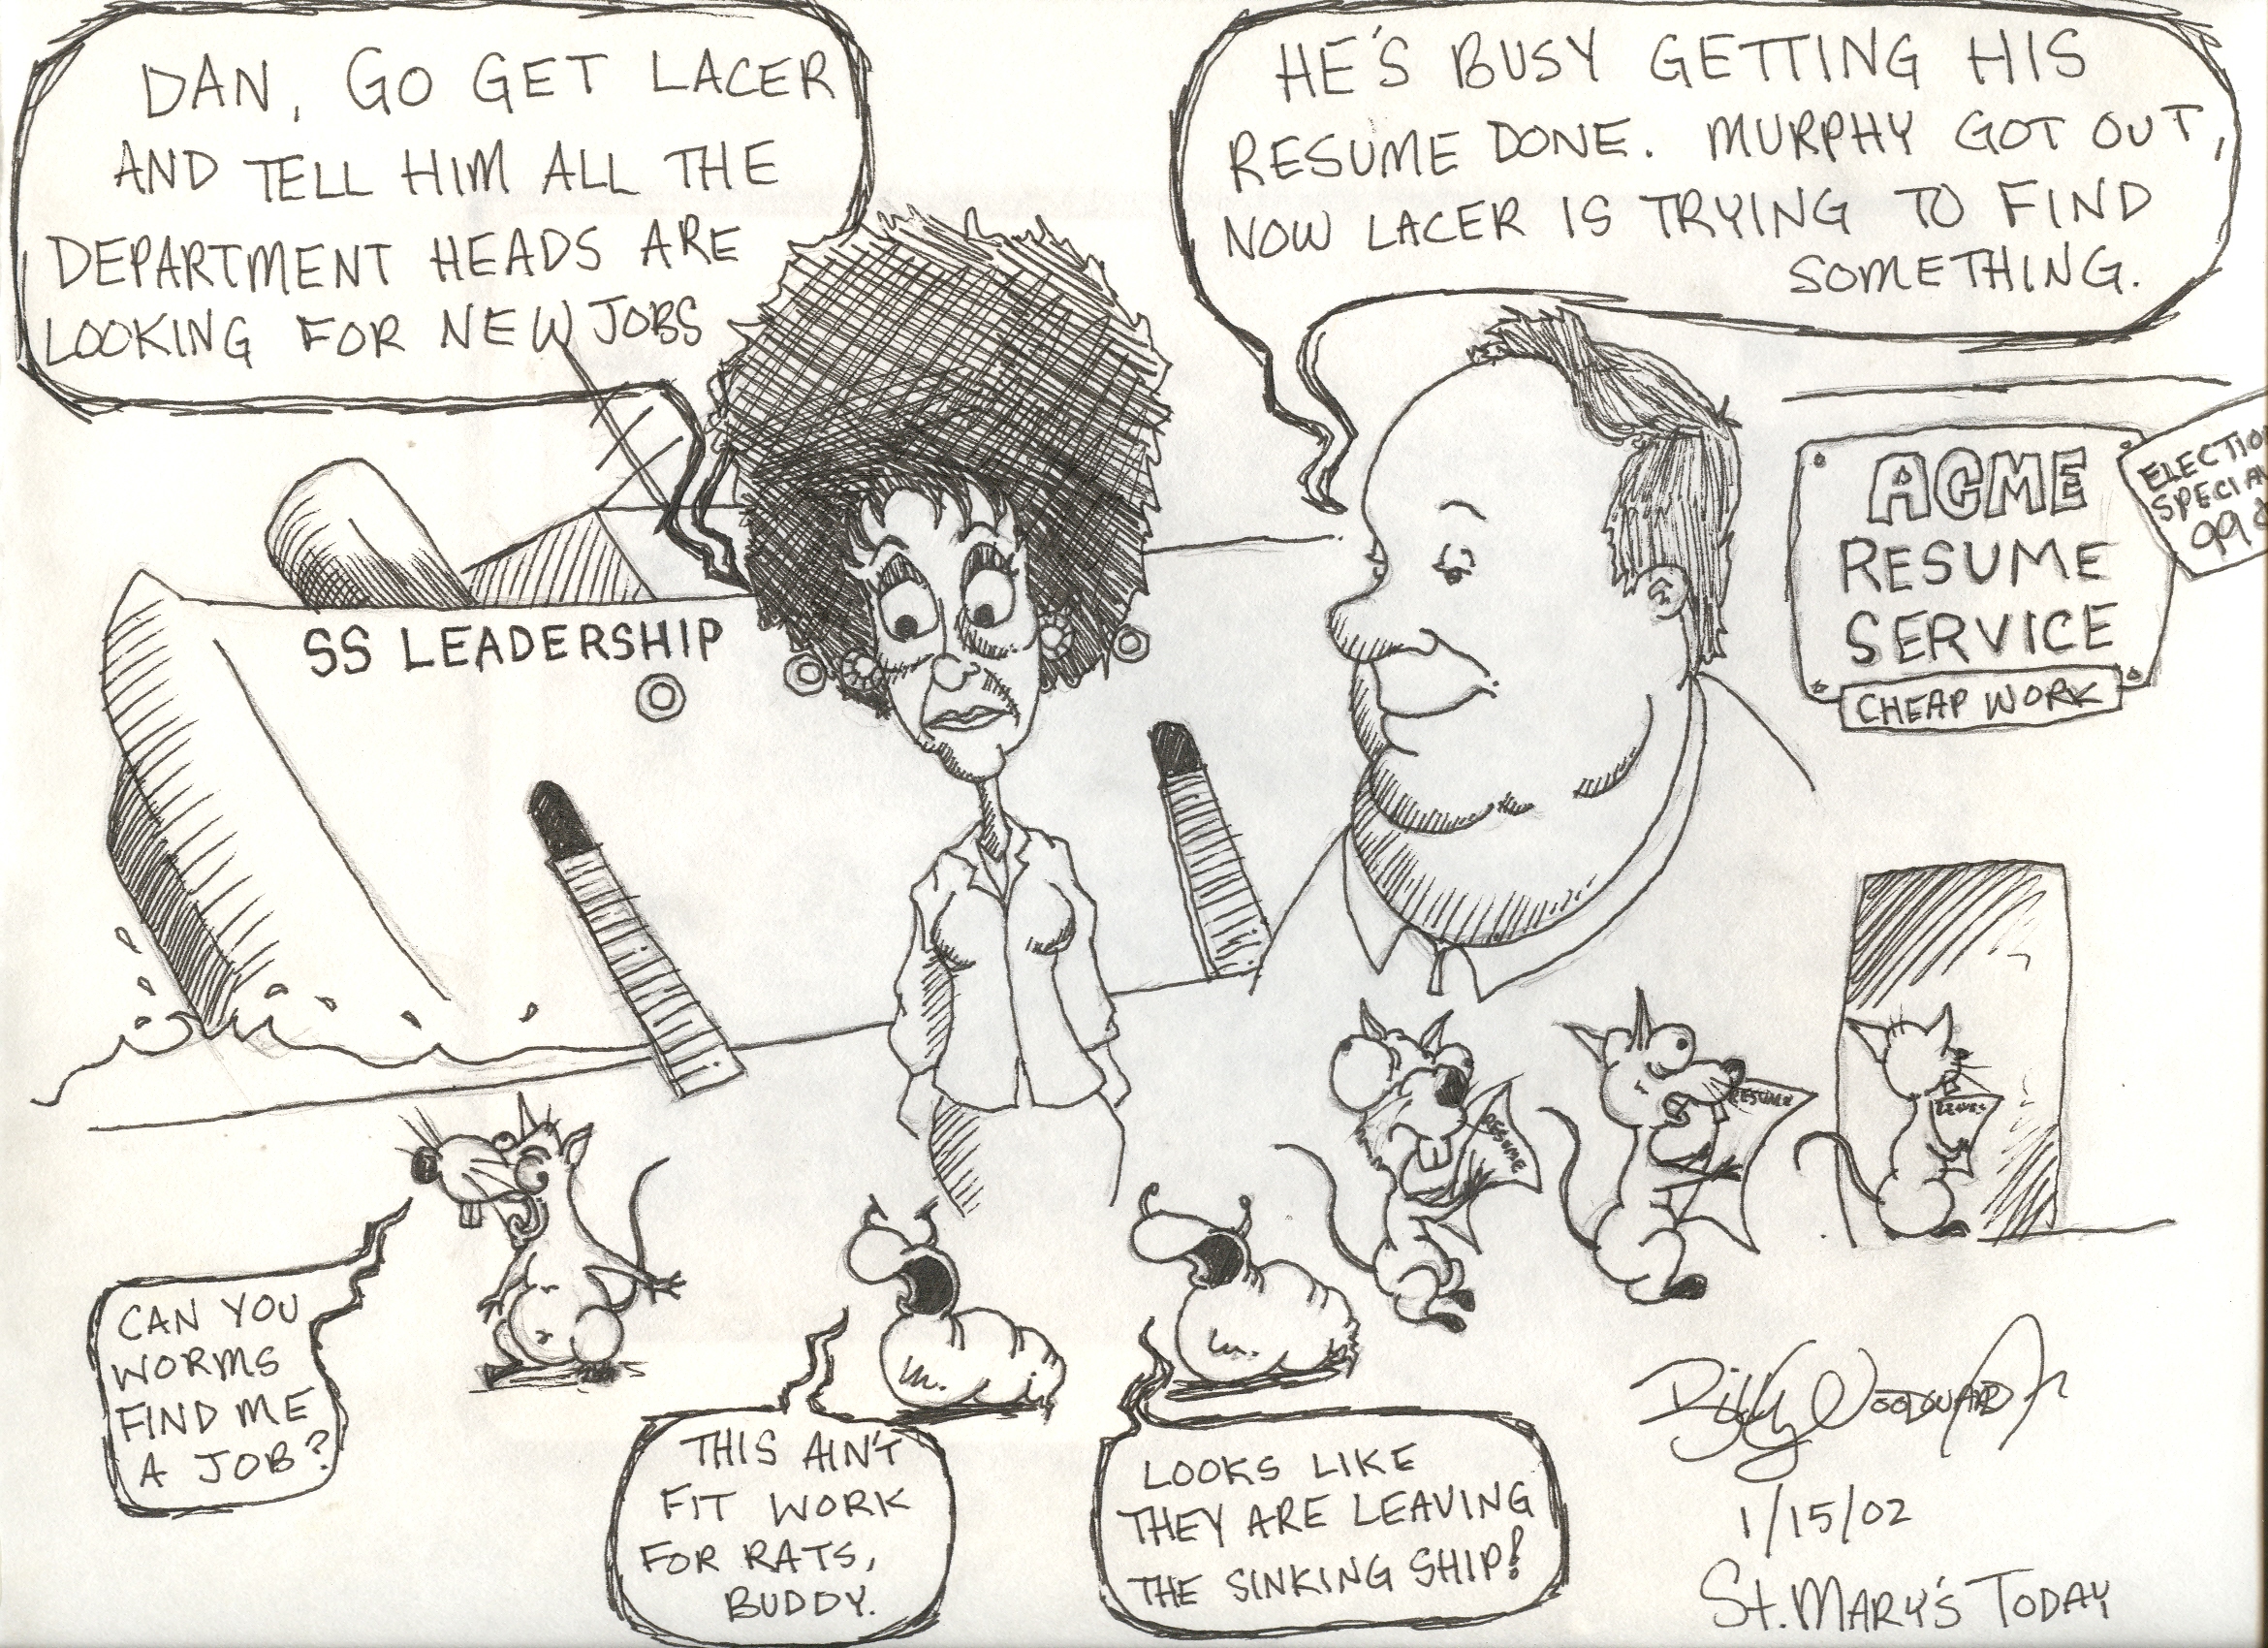 DAN, GO GET LACER
AND TELL HIM ALL THE
DEPARTMENT HEADS ARE
LOOKING FOR NEW JOBS
HE'S BUSY GETTING HIS
RESUME DONE. MURPHY GOT OUT,
NOW LACER IS TRYING TO FIND
SOMETHING.
SS LEADERSHIP
ACME
RESUME
SERVICE
CHEAP WORK
99¢
RESUME
RESUME
CAN YOU
WORMS
FIND ME
A JOB?
THIS AIN'T
FIT WORK
FOR RATS,
BUDDY.
LOOKS LIKE
THEY ARE LEAVING
THE SINKING SHIP!
Billy Woodward Jr
1/15/02
St. MARY'S TODAY